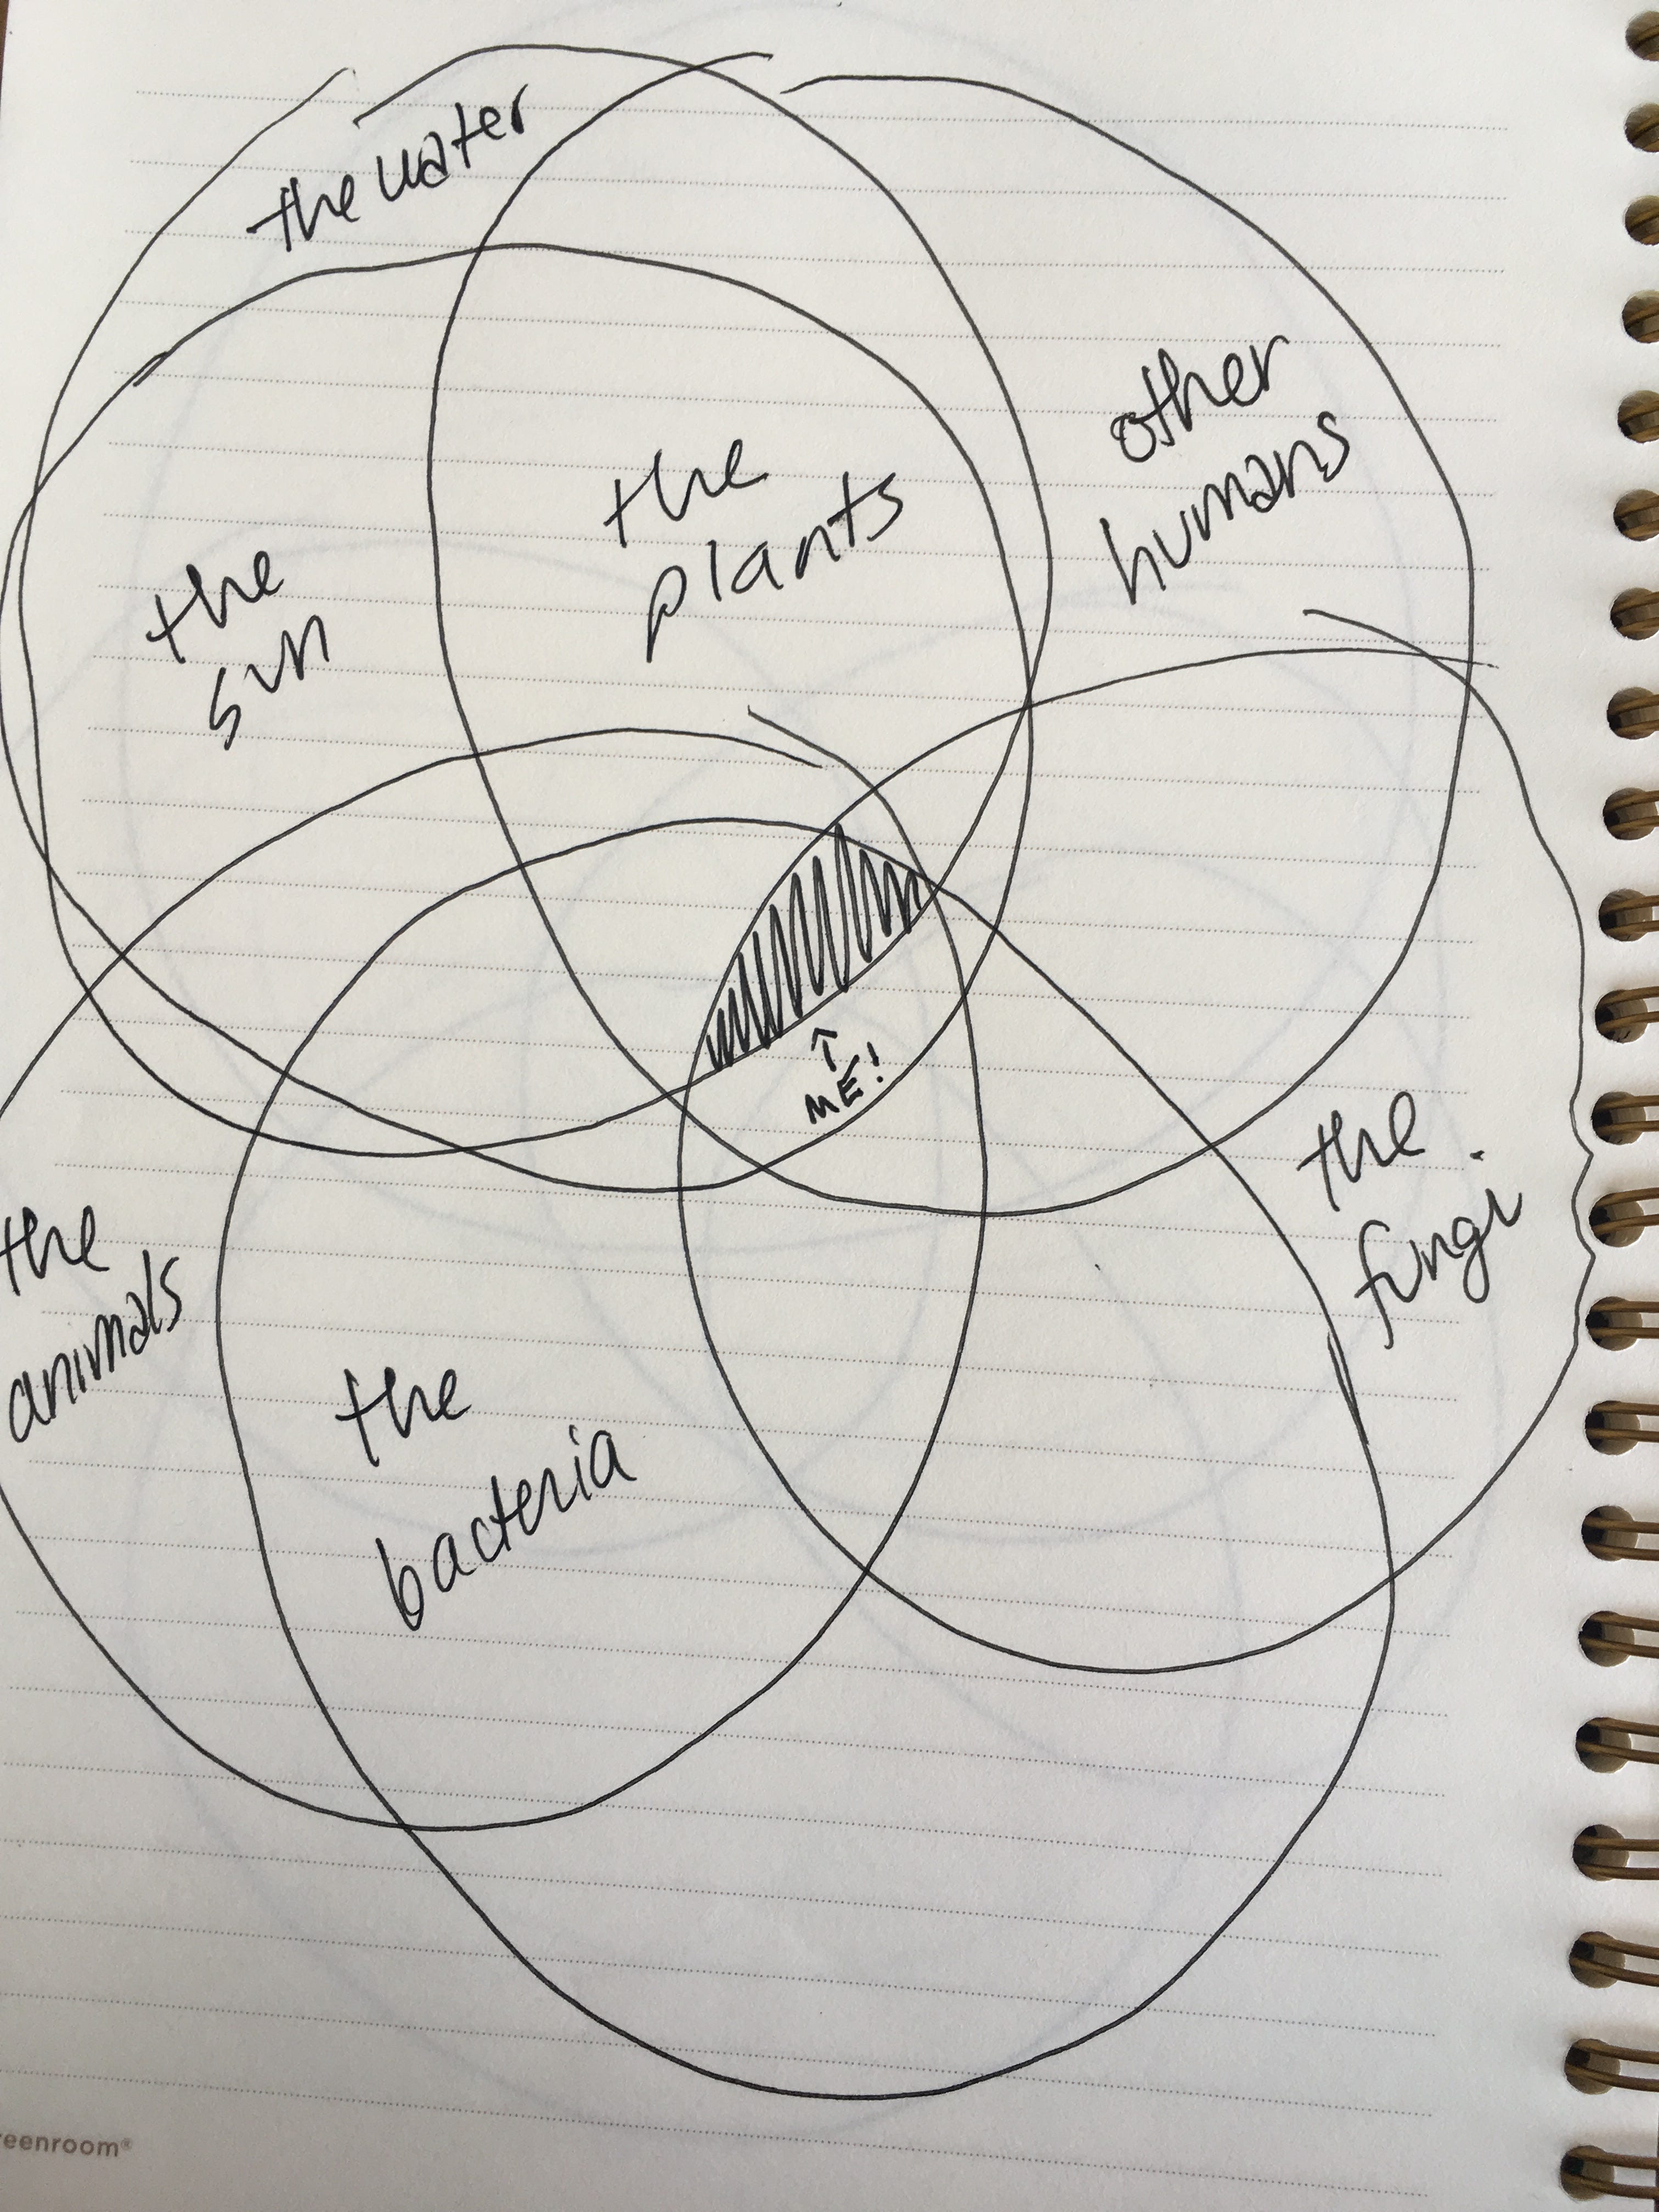 the water
other
humans
the
plants
the
sun
ME!
the
fungi
the
animals
the
bacteria
reenroom®